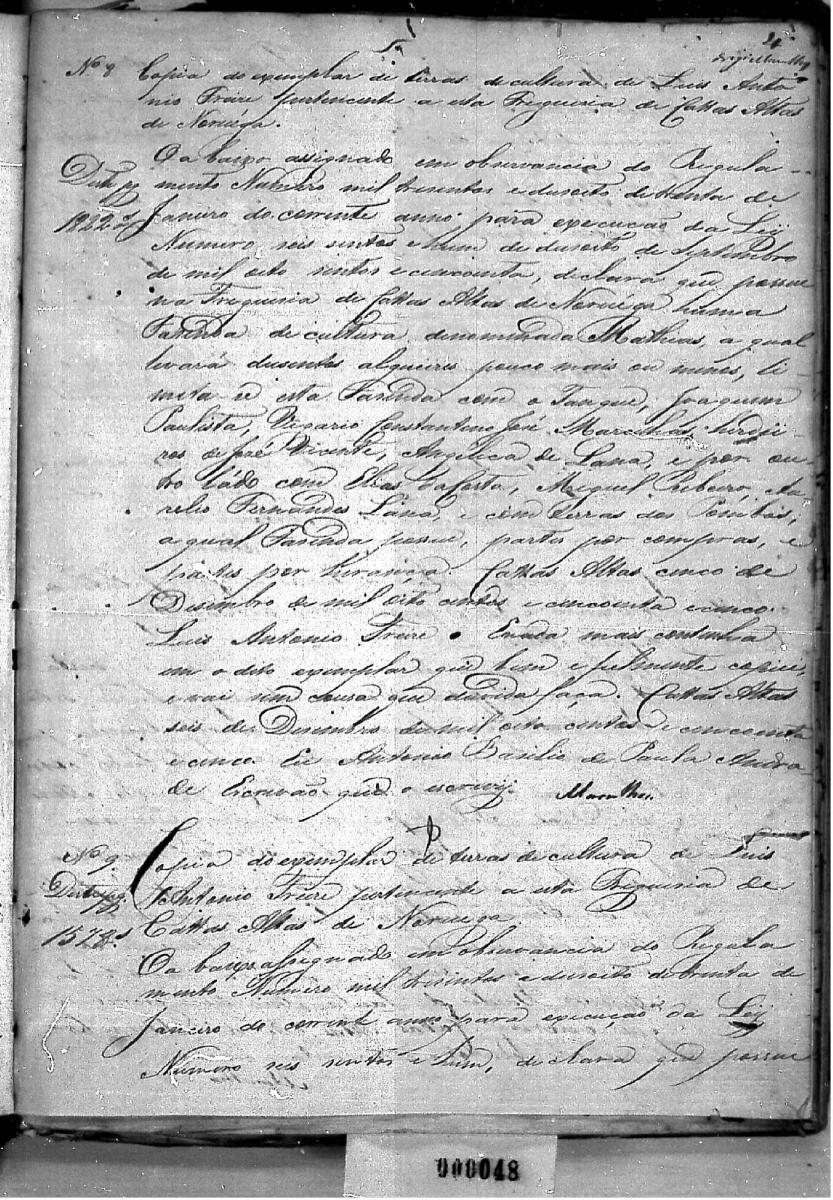 Nº 8 Copia do exemplar de terras de cultura de Luis Anto
nio Freire pertencente a esta Freguesia de Cattas Altas
de Noruega.
O abaixo assignado em observancia do Regula-
mento Numero mil tresentos e desoito de trenta de
Janeiro do corrente anno para execução da Ley
Numero seis sentos e hum de desoito de Septembro
de mil oito sentos e cincoenta, declara que possue
na Freguesia de Cattas Altas de Noruega huma
Fazenda de cultura denominada Mathias, a qual
levará dusentos alqueires pouco mais ou menos, li-
mita se esta Fazenda com o Tanque, Joaquim
Paulista, Vigario Constantino José
ros de José Vicente, Angelica de Lana, e por ou
tro lado com Elias da Costa, Miguel Ribeiro, Au
relio Fernandes Lana, e com terras dos Pombas,
a qual Fazenda possue, partes por compras, e
partes por herança. Cattas Altas cinco de
Desembro de mil oito centos e cincoenta e cinco.
Luis Antonio Freire. E nada mais continha
em o dito exemplar que bem e fielmente copiei,
e vai sem cousa que duvida faça. Cattas Altas
seis de Desembro de mil oito centos e cincoenta
e cinco. Eu Antonio Basilio de Paula Andra-
de Escrivão que o escrevy.
Nº 9 Copia do exemplar de terras de cultura de Luis
Antonio Freire pertencente a esta Freguesia de
Cattas Altas de Noruega
O abaixo assignado em observancia do Regula
mento Numero mil tresentos e desoito de trenta de
Janeiro do corrente anno para execução da Ley
Numero seis sentos e hum, declara que possue
000048